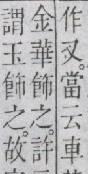 作叉。當云車
金華飾之。許
謂玉飾之。故